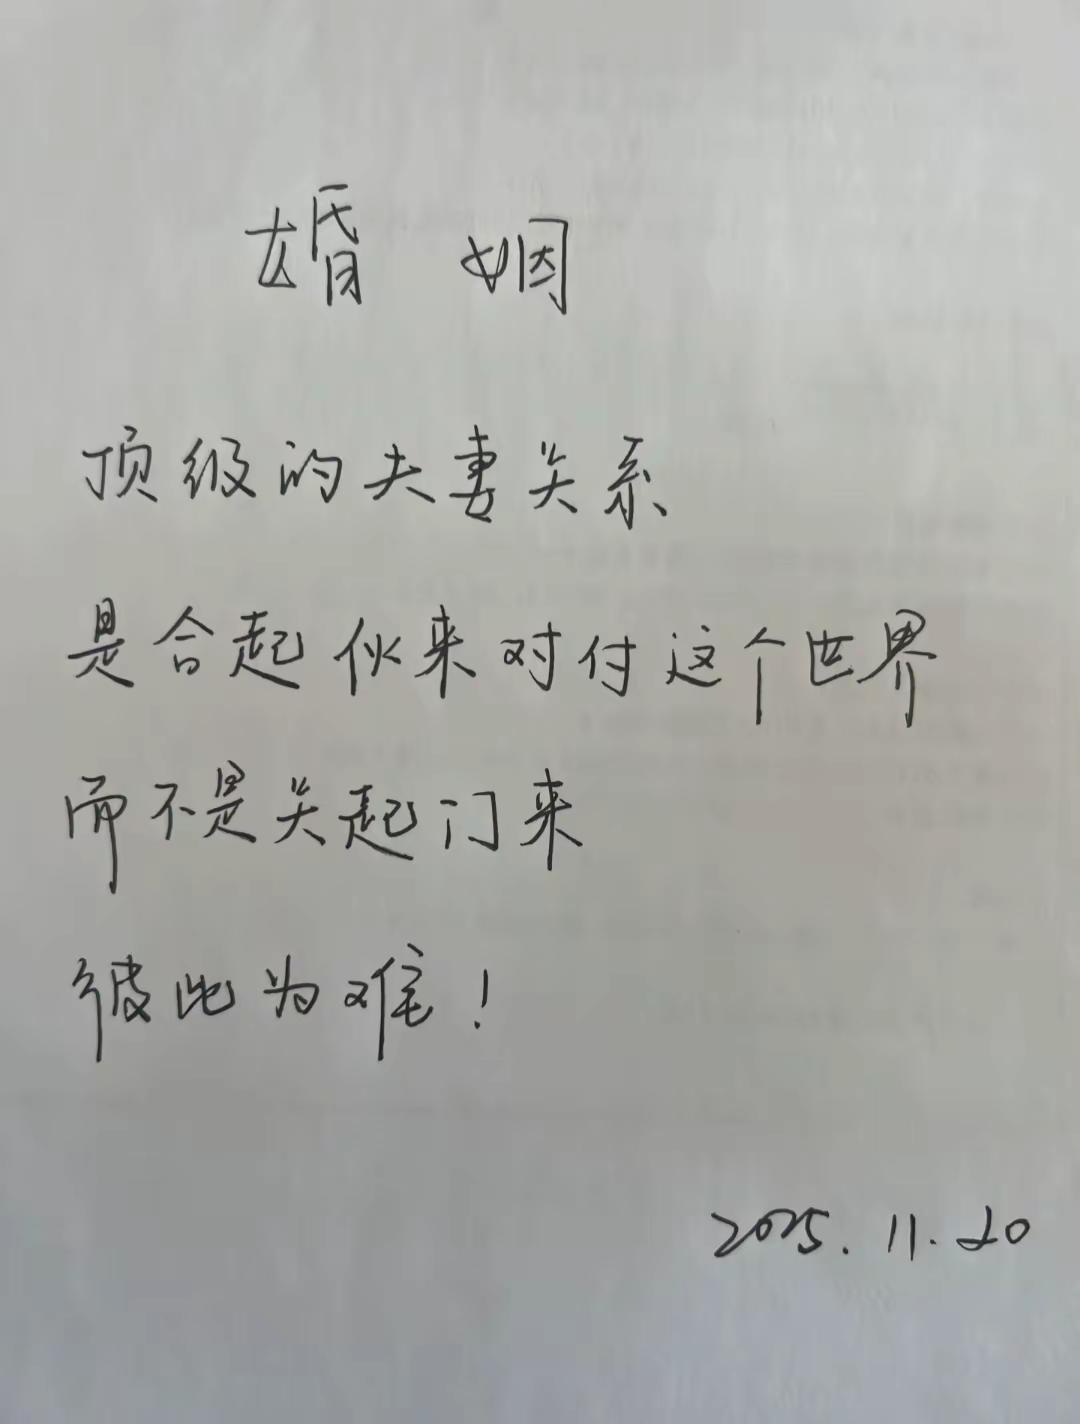 婚 姻
顶级的夫妻关系
是合起伙来对付这个世界
而不是关起门来
彼此为难！
2025.11.20